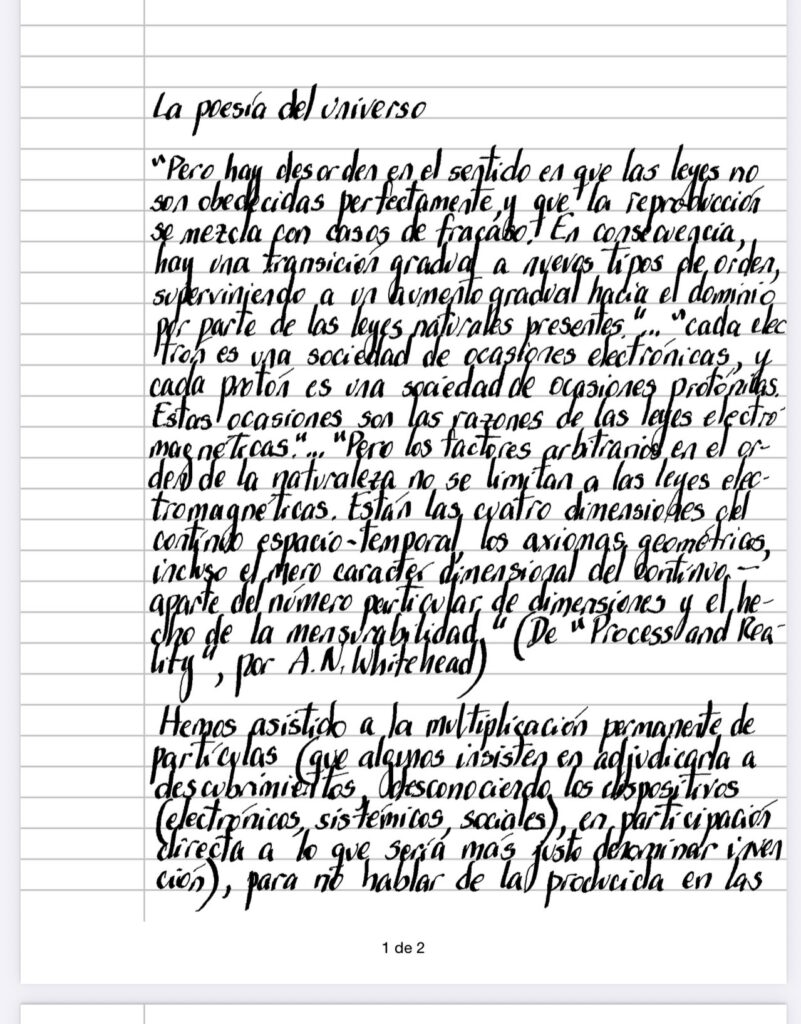 La poesía del universo
"Pero hay desorden en el sentido en que las leyes no
son obedecidas perfectamente, y que la reproducción
se mezcla con casos de fracaso. En consecuencia,
hay una transición gradual a nuevos tipos de orden,
superviniendo a un aumento gradual hacia el dominio
por parte de las leyes naturales presentes."... "cada elec
trón es una sociedad de ocasiones electrónicas, y
cada protón es una sociedad de ocasiones protónicas.
Estas ocasiones son las razones de las leyes electro-
magnéticas."... "Pero los factores arbitrarios en el or-
den de la naturaleza no se limitan a las leyes elec-
tromagnéticas. Están las cuatro dimensiones del
contínuo espacio-temporal, los axiomas geométricos,
incluso el mero caracter dimensional del contínuo —
aparte del número particular de dimensiones y el he-
cho de la mensurabilidad." (De "Process and Rea-
lity", por A.N. Whitehead)
Hemos asistido a la multiplicación permanente de
partículas (que algunos insisten en adjudicarla a
descubrimientos, desconociendo los dispositivos
(electrónicos, sistémicos, sociales), en participación
directa a lo que sería más justo denominar inven
ción), para no hablar de la producida en las
1 de 2